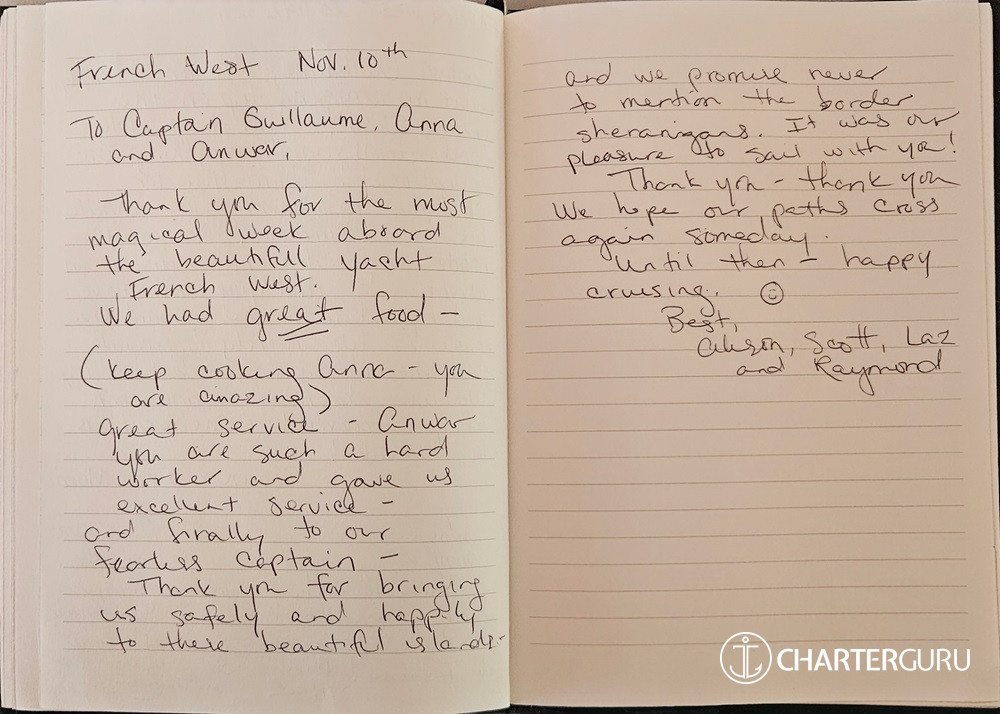 French West Nov. 10th
To Captain Guillaume, Anna
and Anwar,
Thank you for the most
magical week aboard
the beautiful yacht
French West.
We had great food –
(keep cooking Anna – you
are amazing)
great service – Anwar
you are such a hard
worker and gave us
excellent service –
and finally to our
fearless captain –
Thank you for bringing
us safely and happily
to these beautiful islands –
and we promise never
to mention the border
shenanigans. It was our
pleasure to sail with you!
Thank you – thank you
We hope our paths cross
again someday.
Until then – happy
cruising. ☺
Best,
Alison, Scott, Laz
and Raymond
CHARTERGURU